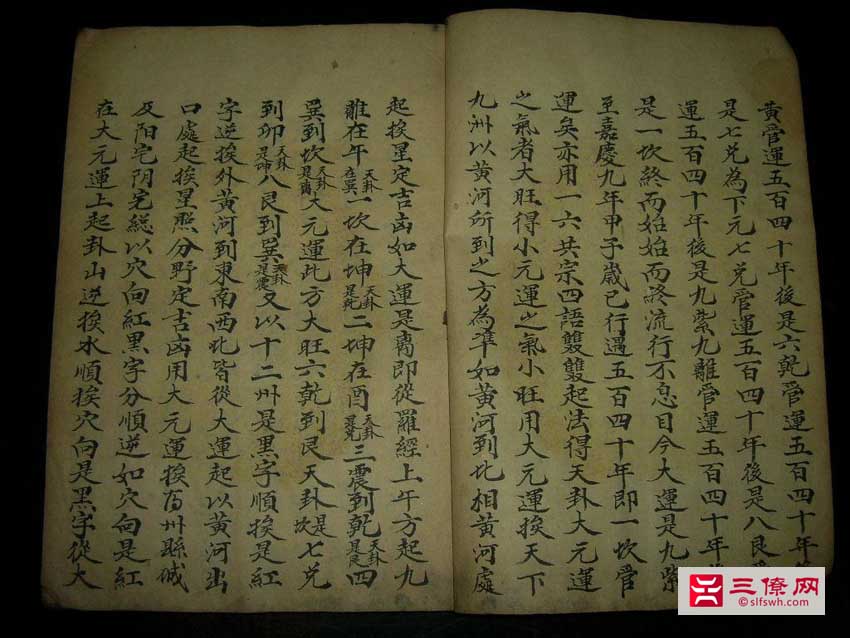 黃管運五百四十年後是六乾管運五百四十年
是七兌為下元七兌管運五百四十年後是八艮
運五百四十年後是九紫九離管運五百四十年
是一坎終而始始而終流行不息目今大運是九紫
至嘉慶九年甲子歲已行過五百四十年即一坎管
運矣亦用一六共宗四語雙雙起法得天卦大元運
之氣者大旺得小元運之氣小旺用大元運挨天下
九洲以黃河所到之方為準如黃河到北相黃河處
起挨星定吉凶如大運是离即從羅經上午方起九
離在午天卦在巽一坎在坤天卦是乾二坤在酉天卦是兌三震到乾天卦是艮四
巽到坎天卦是离大元運此方大旺六乾到艮天卦是坎七兌
到卯天卦是坤八艮到巽天卦是震又以十二州是黑字順挨是紅
字逆挨外黃河到東南西北皆從大運起以黃河出
口處起挨星照分野定吉凶用大元運挨府州縣城
及阳宅阴宅総以穴向紅黑字分順逆如穴向是紅
在大元運上起卦山逆挨水順挨穴向是黑字從大
三僚网
@slfswh.com